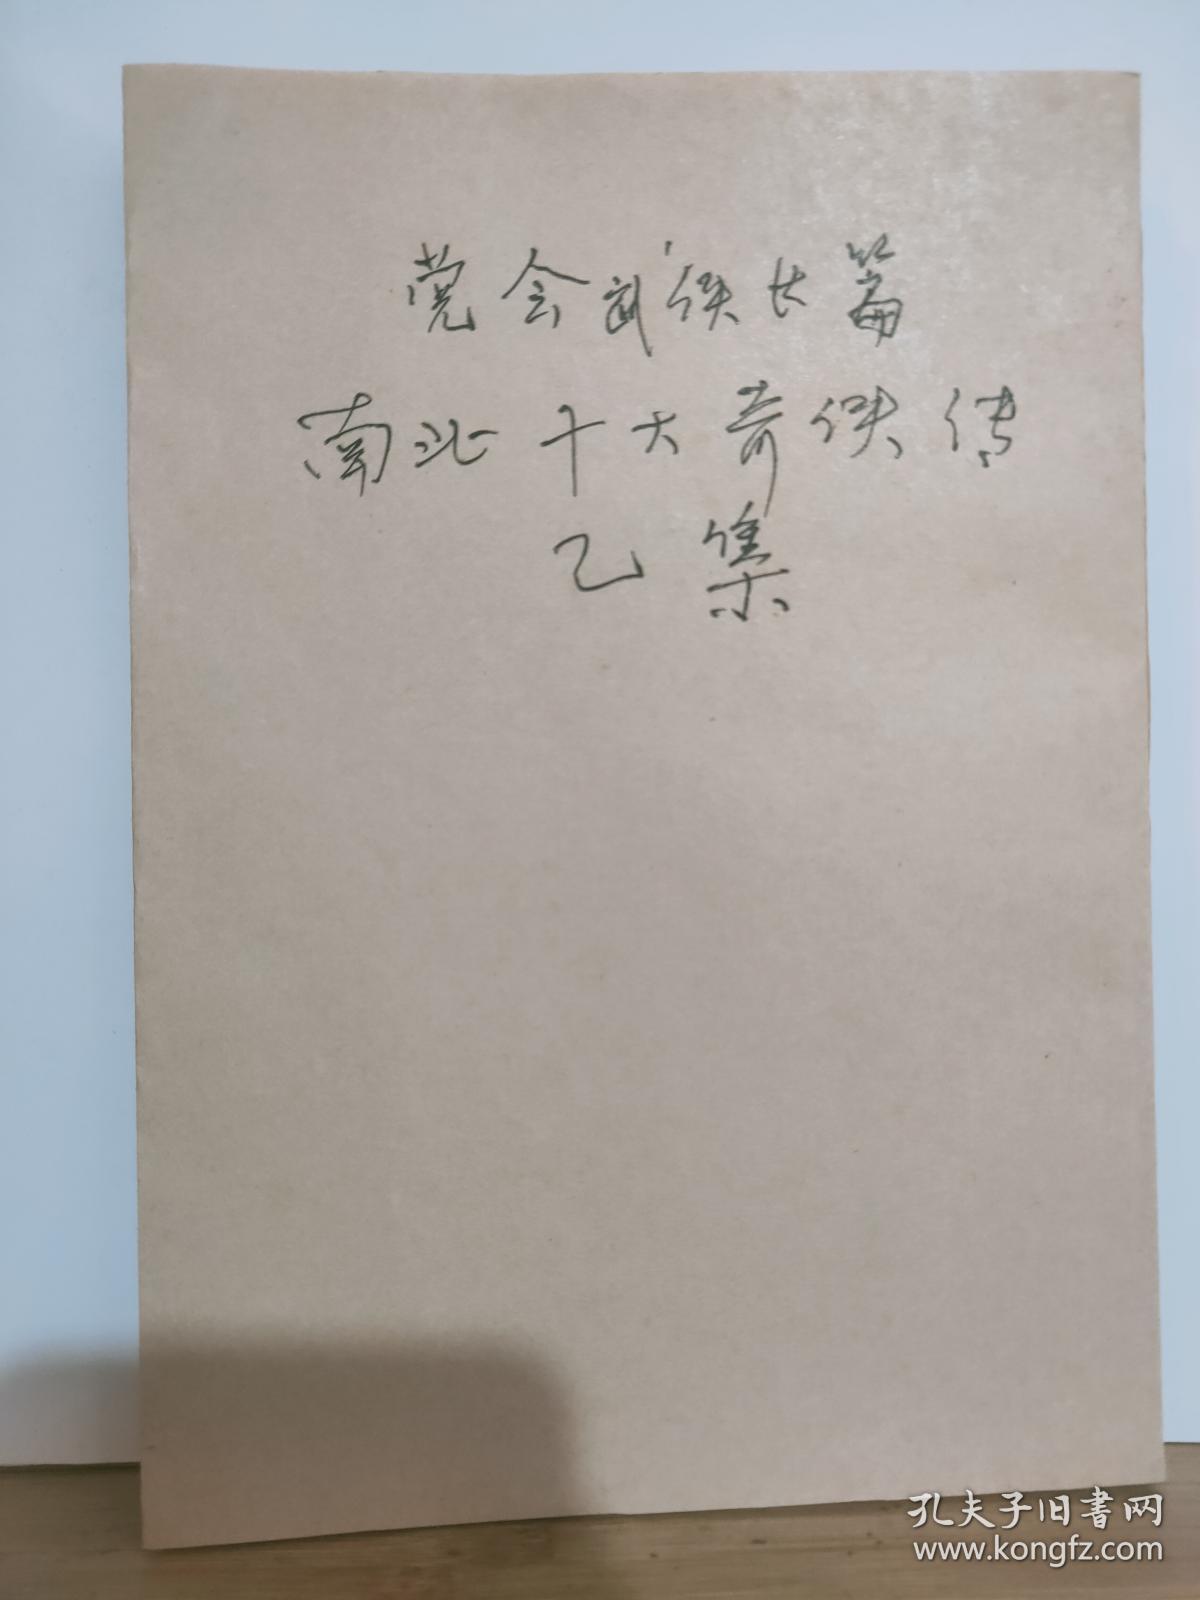 莞会武侠长篇
南北十大奇侠传
乙集
孔夫子旧書网
www.kongfz.com